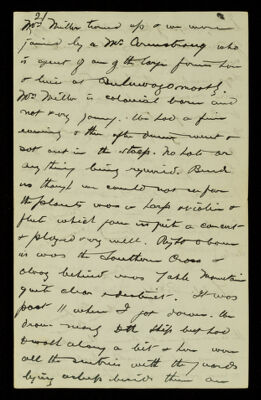 21
Mrs Miller turned up & we were
joined by a Mr Armstrong who
is agent of one of the large firms here
& lives at
Mrs Miller is colonial born and
not very young. We had a fine
evening & then after dinner went &
sat out in the stoep. No hats or
anything being required. Band
as though we could not see for
the plants was a harp a violin &
flute which gave us quite a concert
& played very well. Right above
us was the Southern Cross &
away behind was Table Mountain
quite clear & distinct. It was
past 11 when I got down. The
drain many ship but had
to walk along a bit & here were
all the sentries with the guards
lying asleep beside them an